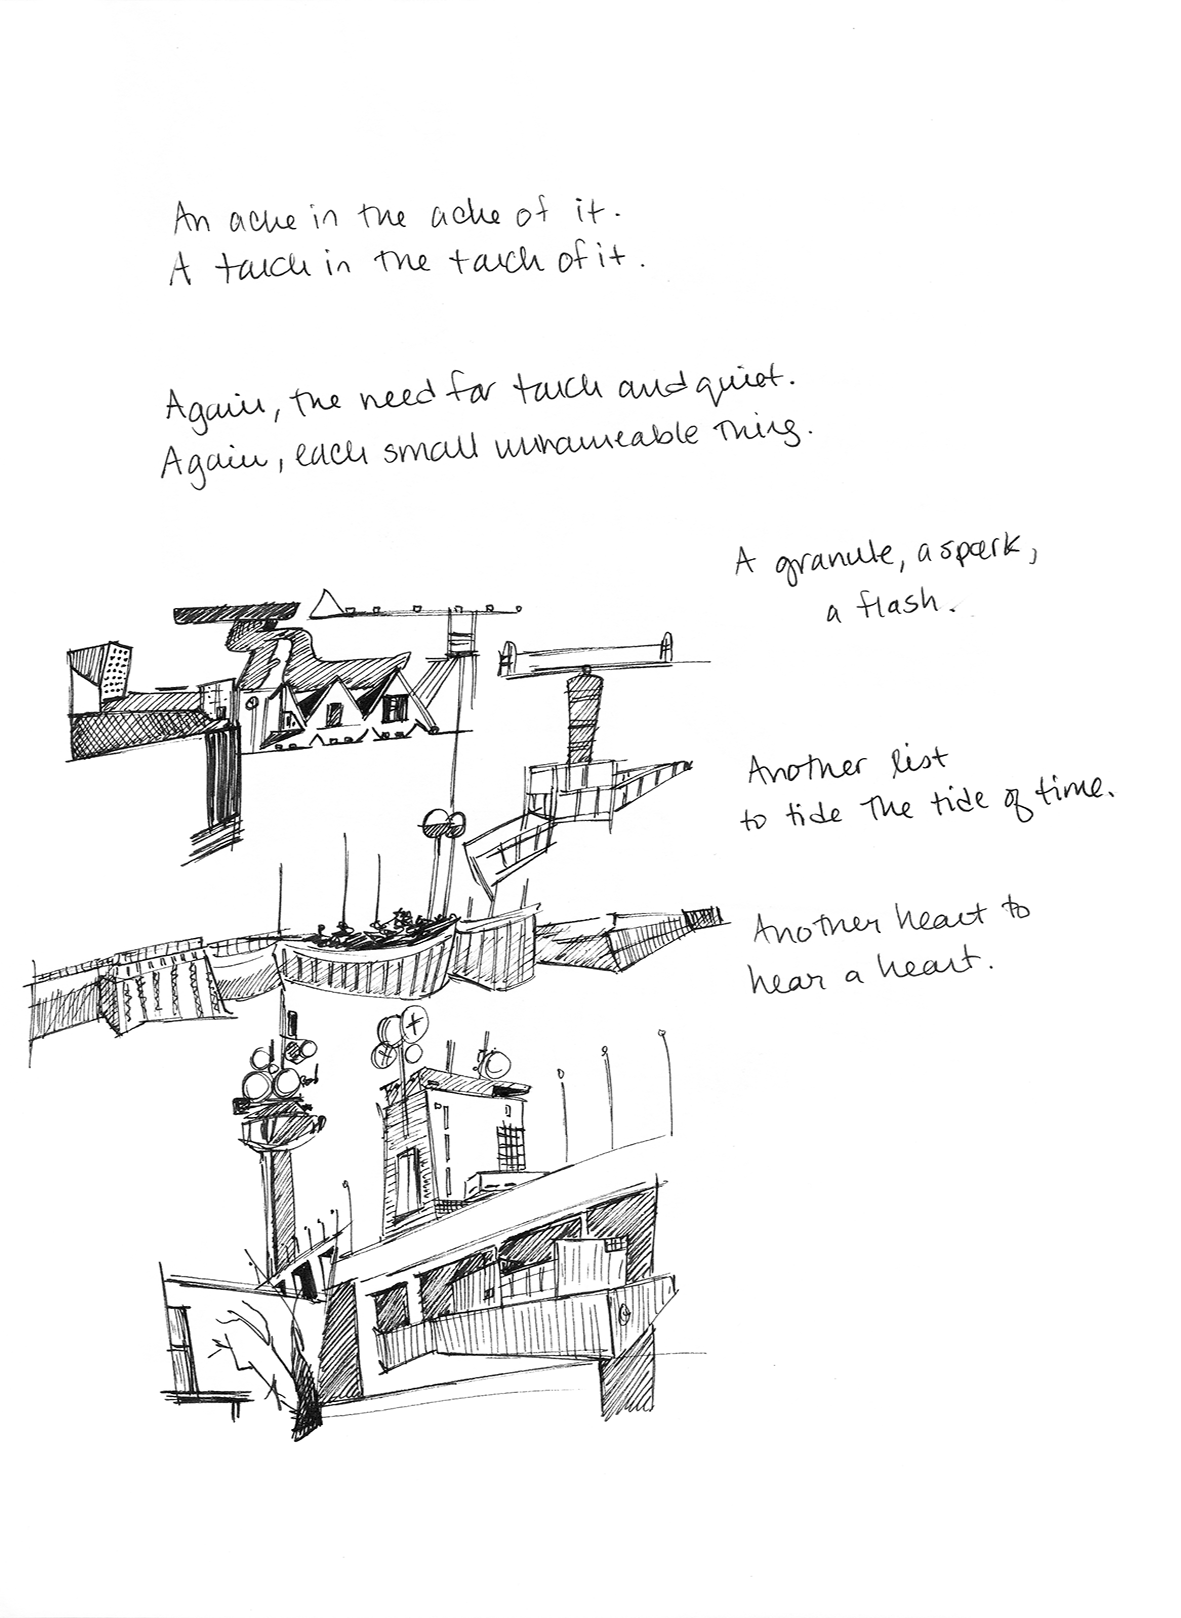 An ache in the ache of it.
A touch in the touch of it.
Again, the need for touch and quiet.
Again, each small unnameable thing.
A granule, a spark,
a flash.
Another list
to tide the tide of time.
Another heart to
hear a heart.